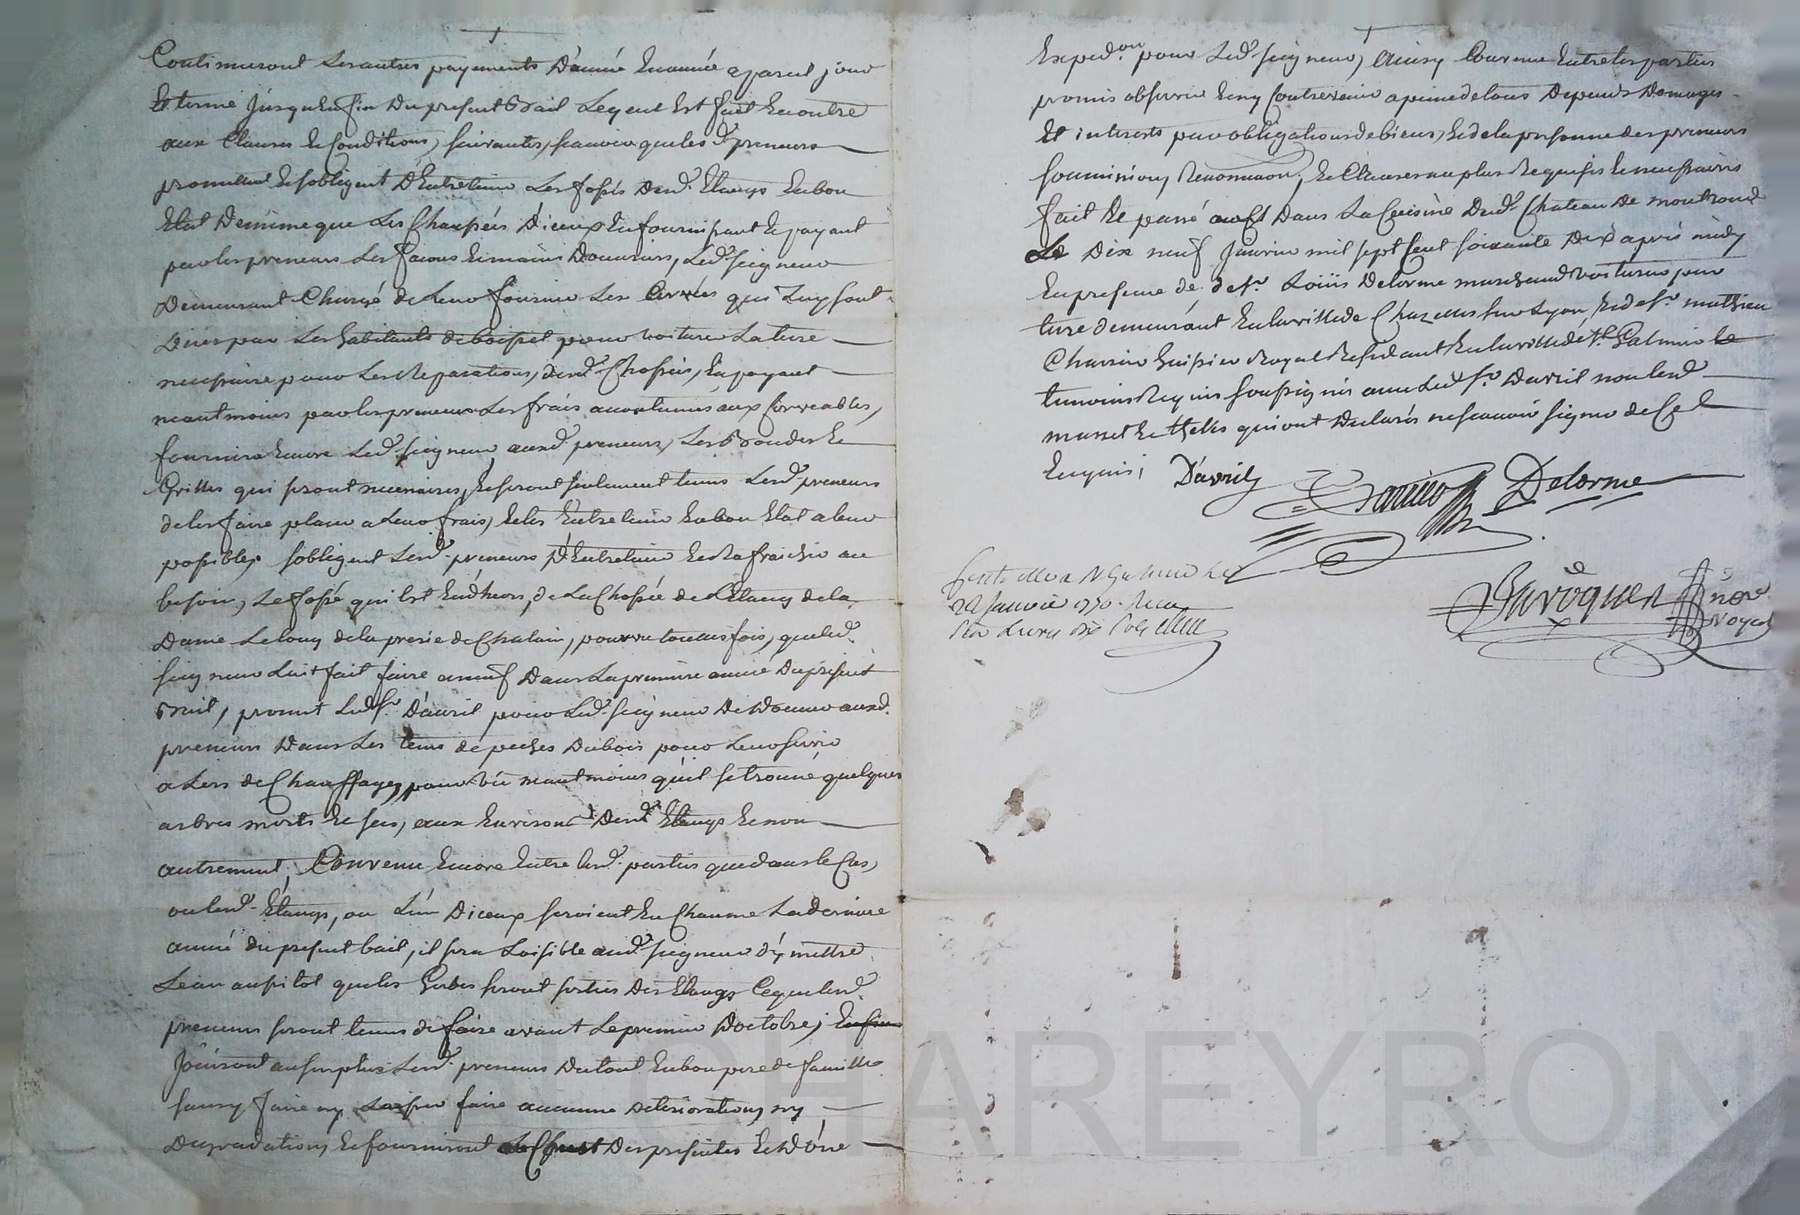 Continueront les autres payements d'année en année a pareil jour
et terme jusqu'en fin du present Bail lequel est fait en outre
aux Clauses et Conditions, suivantes, scavoir que les d. preneurs
promettent et s'obligent d'Entretenir les fossés desd. Etangs en bon
Etat de même que les Chaussées d'iceux en fournissant et payant
par les preneurs les facons et mains d'ouvriers, led. seigneur
demeurant Chargé de leur fournir les Corvées qui luy sont
düees par les habitants de boisset pour voiturer la terre
necessaire pour les Reparations, desd. Chossées, En payant
neantmoins par les preneurs les frais accoutumés aux Corveables,
fournira Encore led. seigneur auxd. preneurs, les Bondes et
Grilles qui seront necessaires, et seront seulement tenus lesd. preneurs
de les faire placer a leur frais, et les Entretenir en bon Etat a leur
possible, s'obligent lesd. preneurs d'Entretenir et Rafraichir au
besoin, le fossé qui est En dhors, de la Chossée de l'Etang de la
Dame le long de la prerie de Chalain, pourvu toutes fois, que led.
seigneur l'ait fait faire a neuf dans la premiere année du présent
Bail, promet led. Sr. D'avril pour led. seigneur de donner auxd.
preneurs dans les tems de peches du bois pour leur servir
a leur de Chauffage, pourvû neantmoins qu'il se trouve quelques
arbres morts et secs, aux Environs desd. Etangs et non
autrement, Convenu Encore Entre lesd. parties que dans le Cas,
ou lesd. Etangs, ou l'un d'iceux seroient En Chaume la derniere
année du present bail, il sera loisible aud. seigneur d'y mettre
l'eau aussitot que les Gerbes seront sorties des Etangs Ce que lesd.
preneurs seront tenus de faire avant le premier d'octobre,
Jouiront au surplus lesd. preneurs du tout En bon pere de famille
sans y faire ny faire aucunne deteriorations, ny
degradations, et fourniront des presentes et d'une
Exped.on pour led. seigneur, Ainsy Convenu Entre les parties
promis observer et ny Contrevenir a peine de tous depends domages
et interests par obligations de biens, et de la personne des preneurs
soumissions Renonciaon, et Clauses au plus Requises et necessaires
fait et passé dans la Cuisine dud. Chateau de montrond
le dix neuf Janvier mil sept cent soixante dix après midy
En presence de de Sr. Loüis Delorme marchand voiturier par
terre demeurant En la ville de Chazelles sur Lyon, et de Sr. mathieu
huissier Royal Residant En la ville de St. Galmier
temoins Requis soussignés avec led. Sr. D'avril non lesd.
musset et thelis qui ont declarés ne scavoir signer de Ce
Enquis;
D'avril
Delorme
Controllé a St Galmier le
29 Janvier 1770. Reçu
Baroques nore.
Royal
CHAREYRON